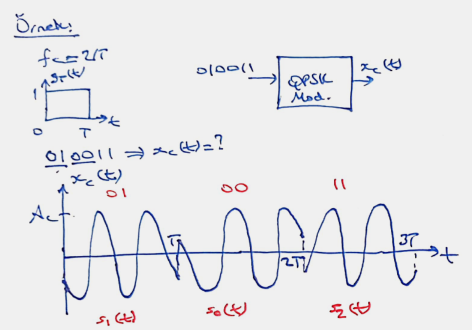 Örnek:
f_c = 2/T
g_T(t)
1
0 T t
010011 → QPSK Mod. → x_c(t)
010011 ⇒ x_c(t) = ?
x_c(t)
01 00 11
A_c
T 2T 3T t
s_1(t) s_0(t) s_2(t)